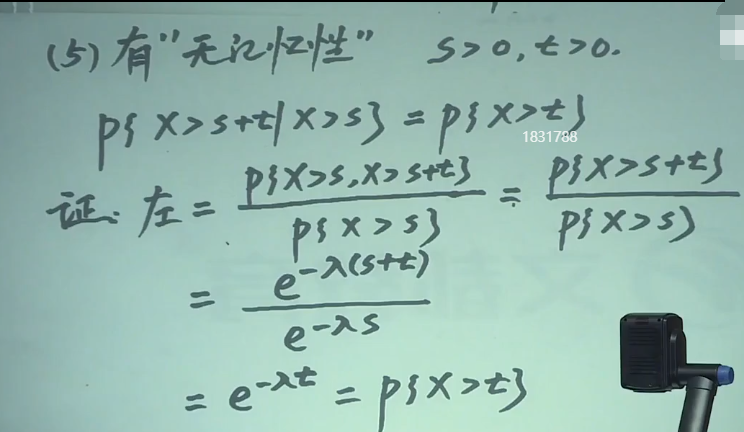 (5) 有"无记忆性" s>0, t>0.
P{X>s+t|X>s} = P{X>t}
1831788
证: 左 = P{X>s, X>s+t} / P{X>s} = P{X>s+t} / P{X>s}
= e^{-λ(s+t)} / e^{-λs}
= e^{-λt} = P{X>t}